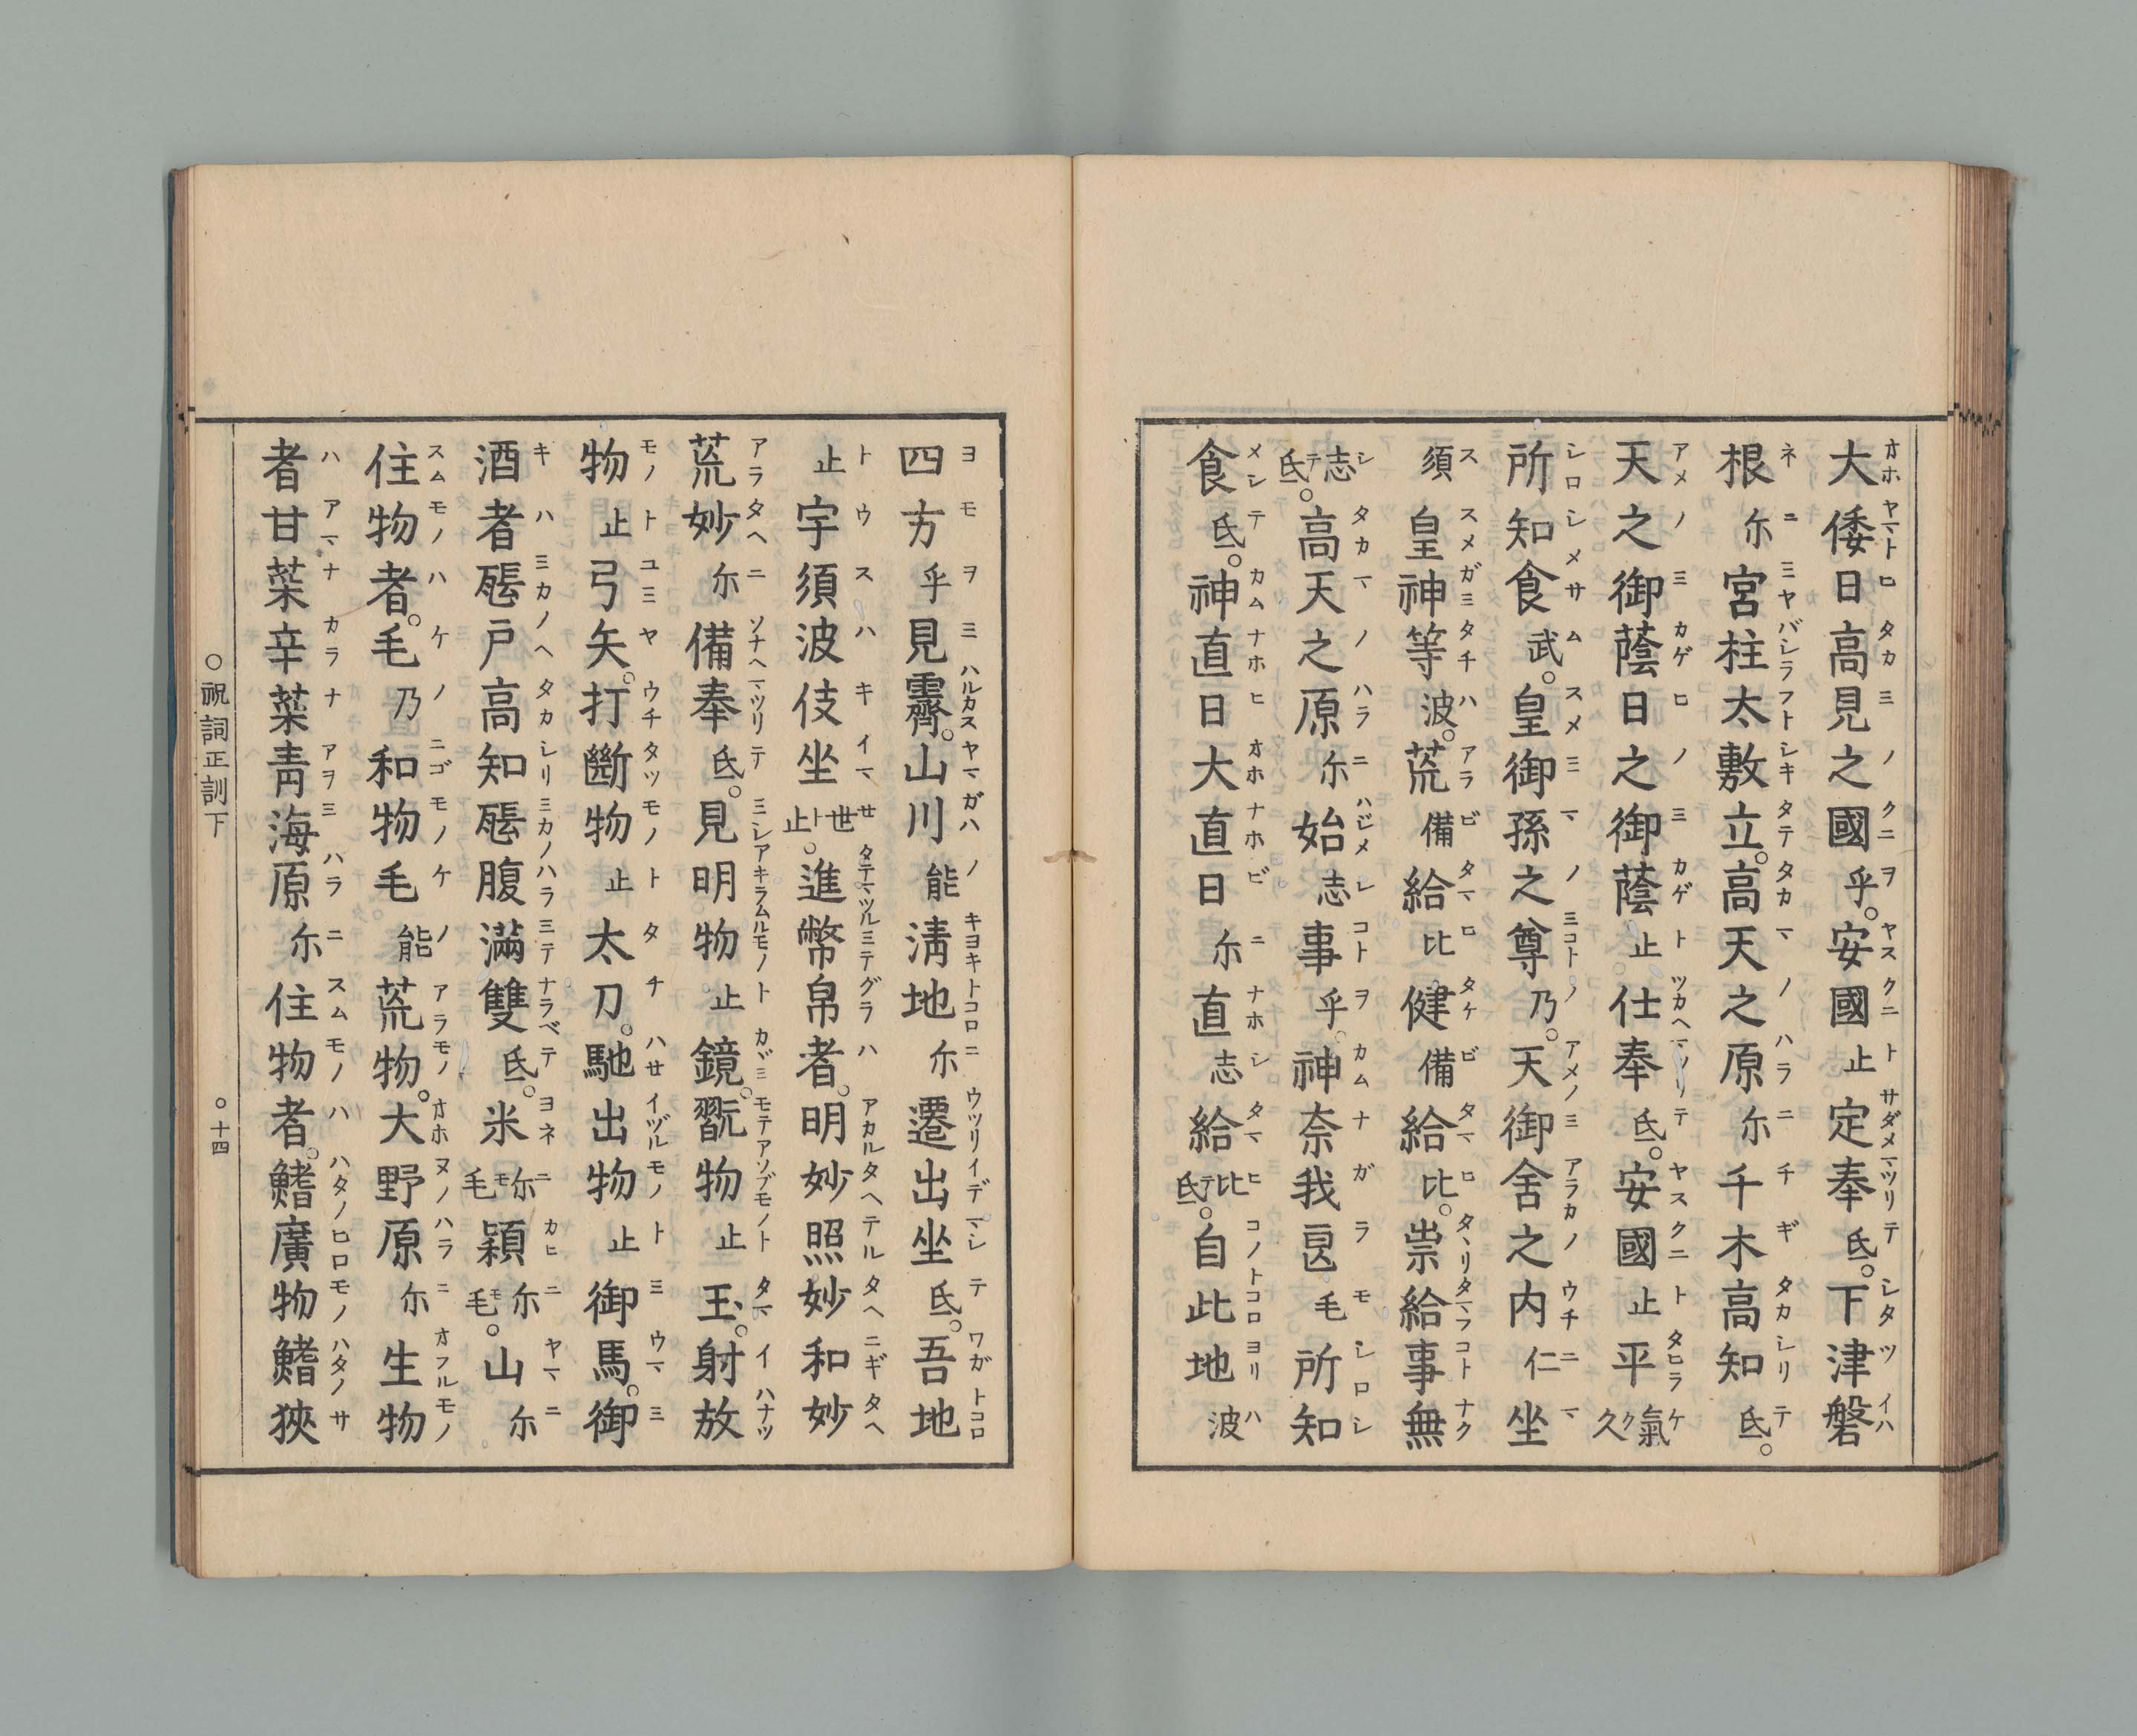 大倭日高見之國乎。安國止定奉氐。下津磐
根尓宮柱太敷立。高天之原尓千木高知氐。
天之御蔭日之御蔭止仕奉氐。安國止平氣久
所知食武。皇御孫之尊乃。天御舍之内仁坐
須皇神等波。荒備給比健備給比。崇給事無
志氐。高天之原尓始志事乎。神奈我良毛所知
食氐。神直日大直日尓直志給比氐。自此地波
四方乎見霽。山川能淸地尓遷出坐氐。吾地
止宇須波伎坐世止。進幣帛者。明妙照妙和妙
荒妙尓備奉氐。見明物止鏡。翫物止玉。射放
物止弓矢。打斷物止太刀。馳出物止御馬。御
酒者𤭖戸高知𤭖腹滿雙氐。米尓毛穎尓毛。山尓
住物者。毛乃和物毛能荒物。大野原尓生物
者甘菜辛菜靑海原尓住物者。鰭廣物鰭狹
○祝詞正訓下 ○十四